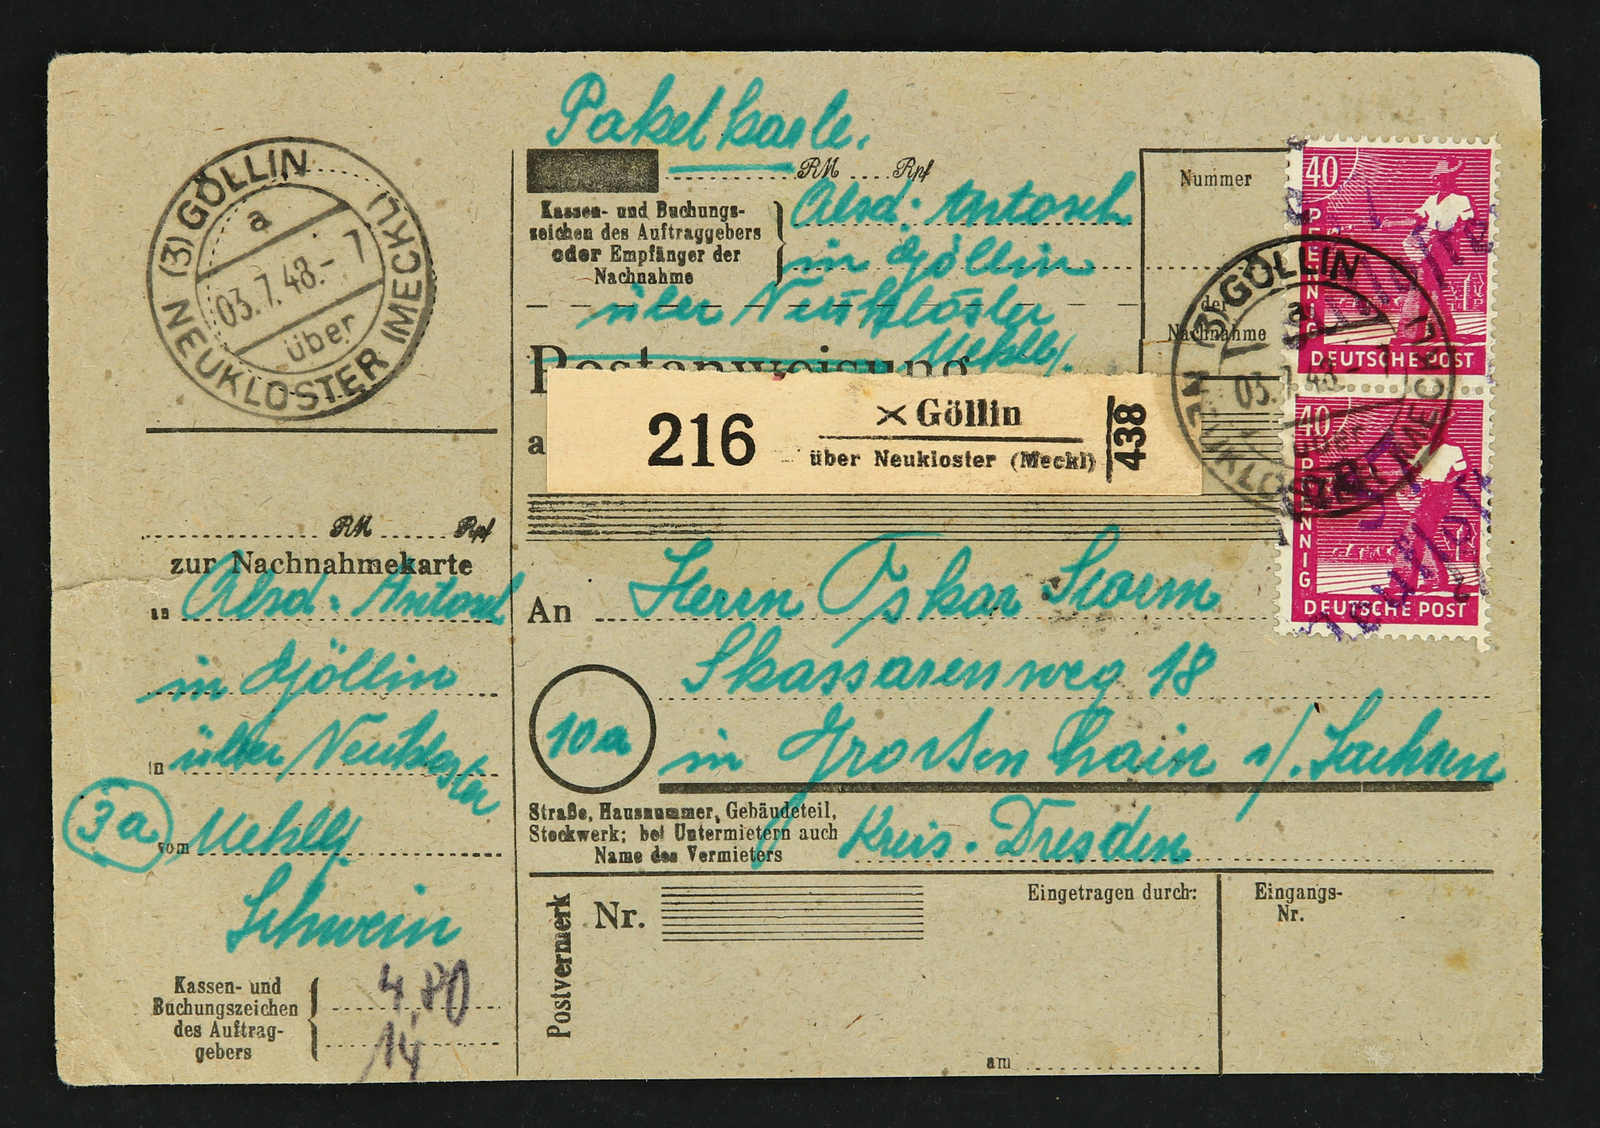 Paketkarte.
(3) GÖLLIN
a
03.7.48.- 7
über
NEUKLOSTER (MECKL)
RM Rpf
Kassen- und Buchungs-
zeichen des Auftraggebers
oder Empfänger der
Nachnahme
Absd. Antosch
in Göllin
über Neukloster
Meklbg.
Postanweisung
a
216
×Göllin
über Neukloster (Meckl)
438
Nummer
der
Nachnahme
40
PFENNIG
DEUTSCHE POST
40
PFENNIG
DEUTSCHE POST
(3) GÖLLIN
a
03.7.48.- 7
über
NEUKLOSTER (MECKL)
RM Rpf
zur Nachnahmekarte
an Absd. Antosch
in Göllin
in über Neukloster
3a
vom Meklbg
Schwein
Kassen- und
Buchungszeichen
des Auftrag-
gebers
4,80
14
An Herrn Oskar Storm
Skassaerenweg 18
10a
in Grossenhain i/. Sachsen
Straße, Hausnummer, Gebäudeteil,
Stockwerk; bei Untermietern auch
Name des Vermieters
Kreis. Dresden
Postvermerk
Nr.
Eingetragen durch:
am
Eingangs-
Nr.